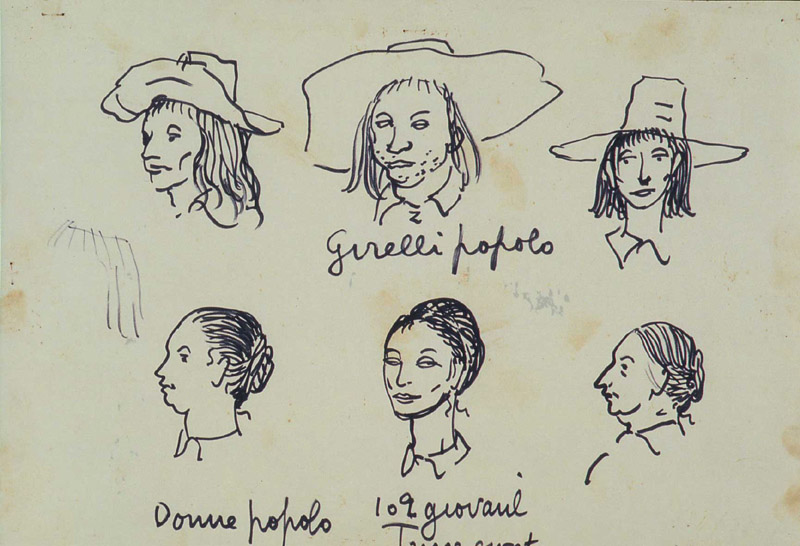 Girelli popolo
Donne popolo
102 giovani